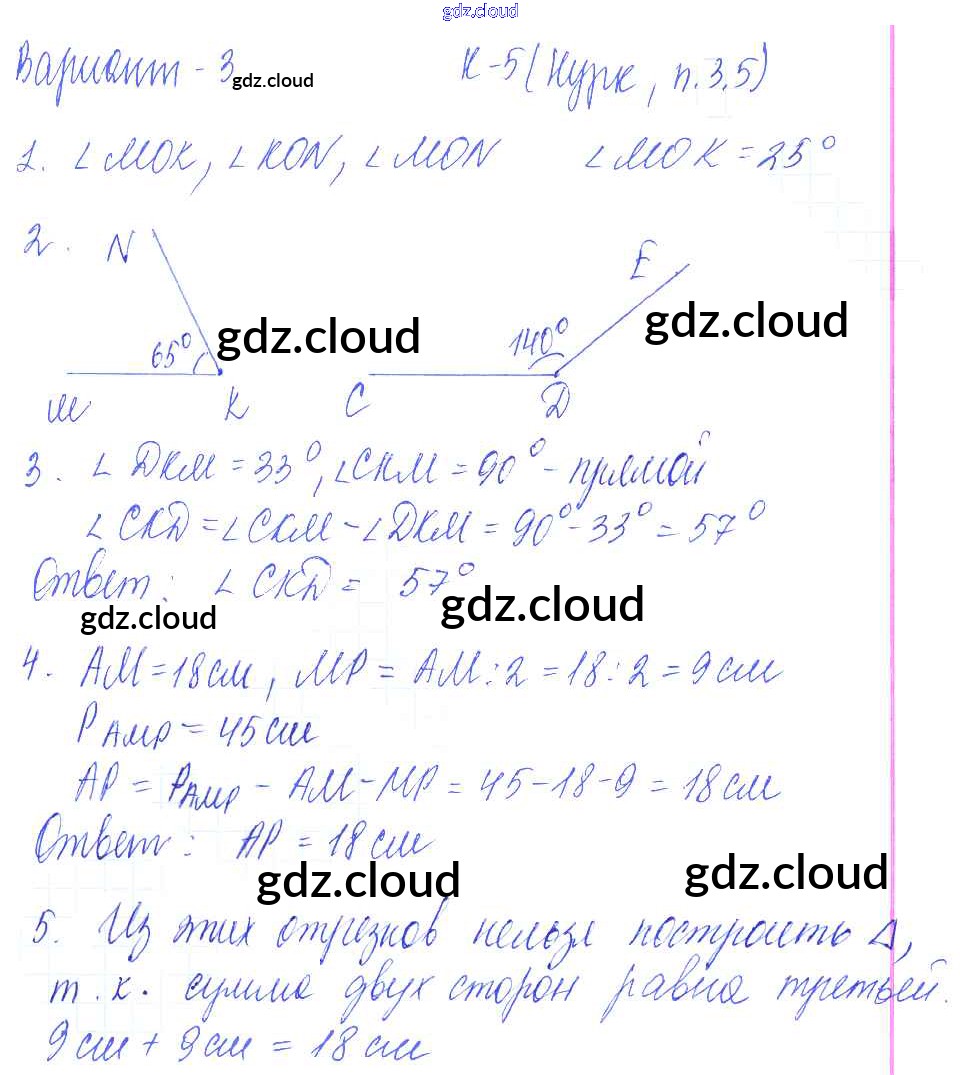 gdz.cloud
Вариант - 3 К-5 (Нурк, п.3.5)
gdz.cloud
1. ∠MOK, ∠KON, ∠MON ∠MOK = 25°
2. N E
gdz.cloud gdz.cloud
65° 140°
M K C D
3. ∠DKM = 33°, ∠CKM = 90° - прямой
∠CKD = ∠CKM - ∠DKM = 90° - 33° = 57°
Ответ: ∠CKD = 57°
gdz.cloud gdz.cloud
4. AM = 18 см, MP = AM : 2 = 18 : 2 = 9 см
P AMP = 45 см
AP = P AMP - AM - MP = 45 - 18 - 9 = 18 см
Ответ: AP = 18 см
gdz.cloud gdz.cloud
5. Из этих отрезков нельзя построить Δ,
т. к. сумма двух сторон равна третьей.
9 см + 9 см = 18 см